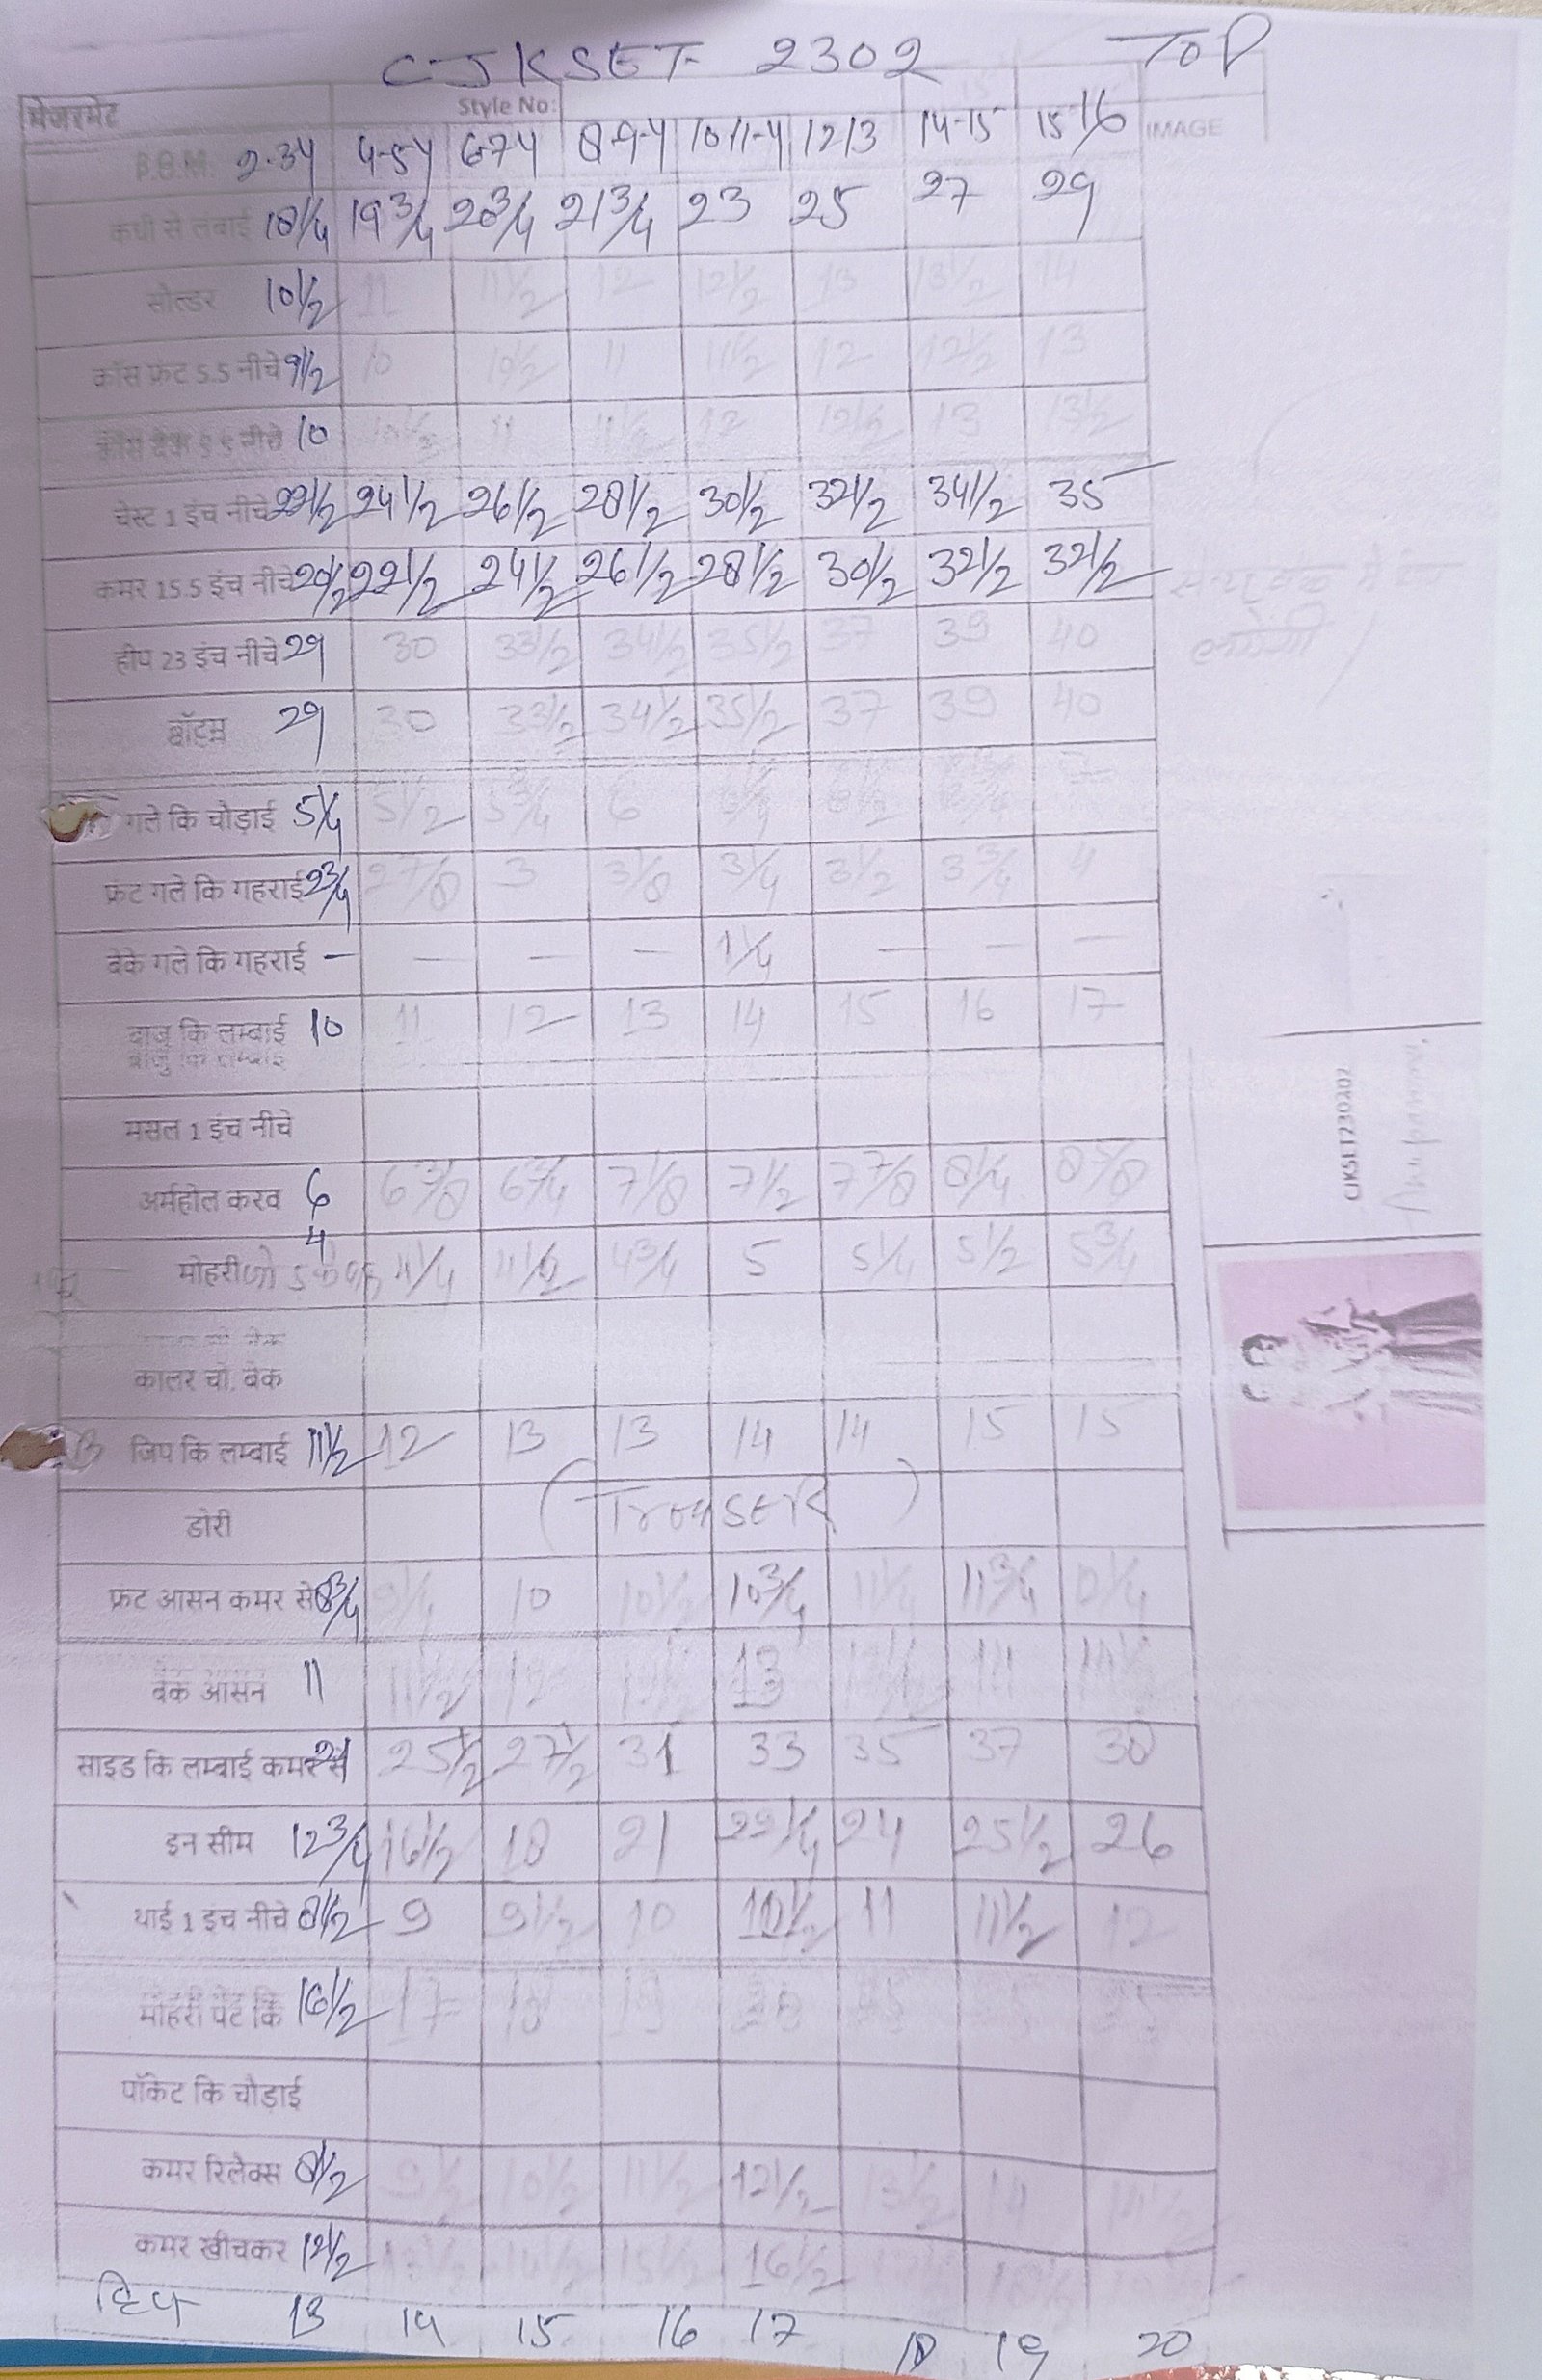 CJKSET- 2302 TOP
मेजरमेंट Style No: IMAGE
2-3Y 4-5Y 6-7Y 8-9-Y 10/11-Y 12/13 14-15 15 16
कंधो से लंबाई 18 1/4 19 3/4 20 3/4 21 3/4 23 25 27 29
सोल्डर 10 1/2 11 11 1/2 12 12 1/2 13 13 1/2 14
क्रॉस फ्रंट 5.5 नीचे 9 1/2 10 10 1/2 11 11 1/2 12 12 1/2 13
क्रॉस बैक 5.5 नीचे 10 10 1/2 11 11 1/2 12 12 1/2 13 13 1/2
चेस्ट 1 इंच नीचे 22 1/2 24 1/2 26 1/2 28 1/2 30 1/2 32 1/2 34 1/2 35
कमर 15.5 इंच नीचे 20 1/2 22 1/2 24 1/2 26 1/2 28 1/2 30 1/2 32 1/2 32 1/2
हीप 23 इंच नीचे 29 30 33 1/2 34 1/2 35 1/2 37 39 40
बॉटम 29 30 33 1/2 34 1/2 35 1/2 37 39 40
गले कि चोड़ाई 5 1/4 5 1/2 5 3/4 6
फ्रंट गले कि गहराई 2 3/4 2 7/8 3 3 1/8 3 1/4 3 1/2 3 3/4 4
बेके गले कि गहराई — — — — 1 1/4 — — —
बाजु कि लम्बाई 10 11 12 13 14 15 16 17
मसल 1 इंच नीचे
अर्महोल करव 6 6 3/8 6 3/4 7 1/8 7 1/2 7 7/8 8 1/4 8 5/8
मोहरी 4 4 1/4 4 1/2 4 3/4 5 5 1/4 5 1/2 5 3/4
कालर चो. बेक
जिप कि लम्बाई 11 1/2 12 13 13 14 14 15 15
डोरी (TrouSER)
फ्रंट आसन कमर से 8 3/4 9 1/4 10 10 1/2 10 3/4 11 1/4 11 3/4
बेक आसन 11 11 1/2 12 13 14
साइड कि लम्बाई कमर से 21 25 1/2 27 1/2 31 33 35 37 38
इन सीम 12 3/4 16 1/2 18 21 22 1/4 24 25 1/2 26
थाई 1 इंच नीचे 8 1/2 9 9 1/2 10 10 1/2 11 11 1/2 12
मोहरी पेंट कि 16 1/2 17 18 19
पॉकेट कि चोड़ाई
कमर रिलेक्स 8 1/2 9 1/2 10 1/2 11 1/2 12 1/2 13 1/2 14
कमर खीचकर 12 1/2 13 1/2 14 1/2 15 1/2 16 1/2
हिप 13 14 15 16 17 18 19 20